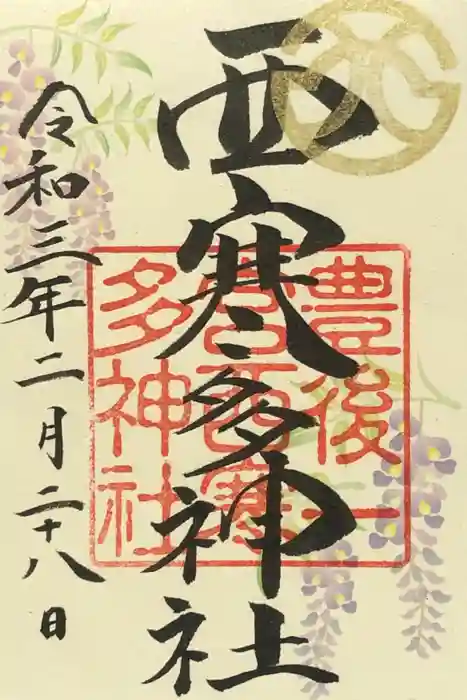 西寒多神社
令和三年二月二十八日
豊後一
宮西寒
多神社